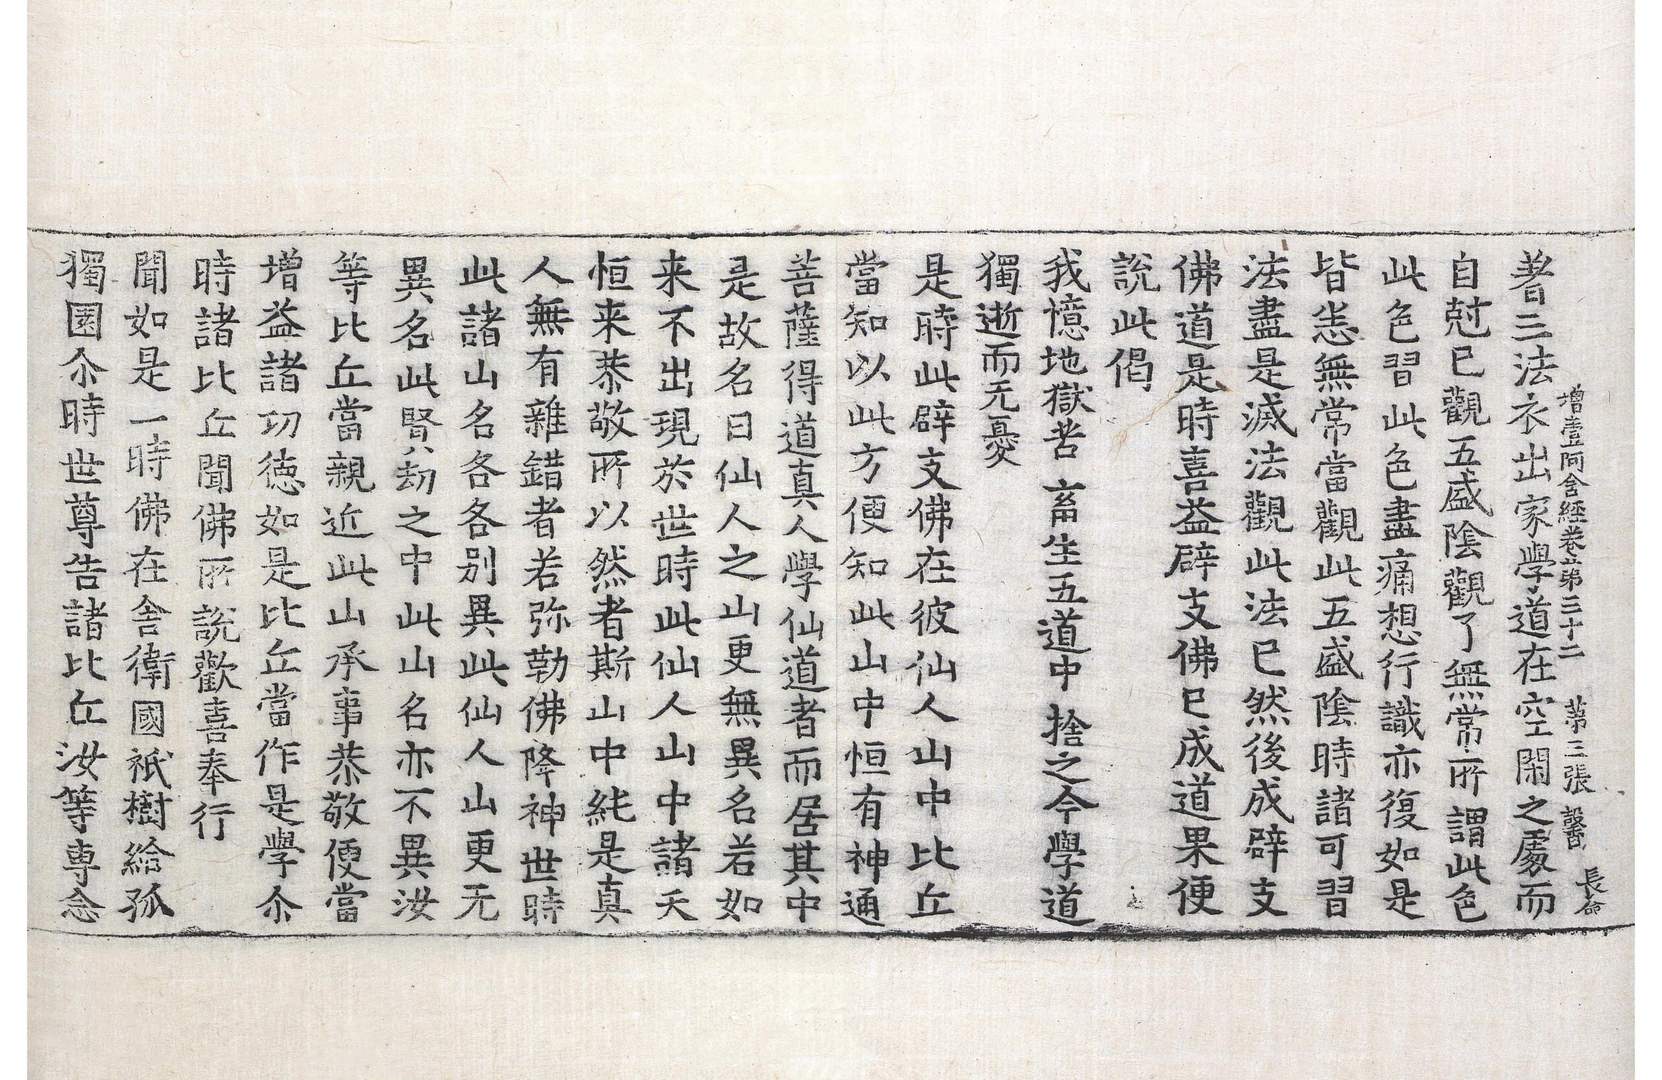 增壹阿含經卷第三十二 第三張 罄 長命
著三法衣出家學道在空閑之處而
自尅已觀五盛陰觀了無常所謂此色
此色習此色盡痛想行識亦復如是
皆悉無常當觀此五盛陰時諸可習
法盡是滅法觀此法已然後成辟支
佛道是時喜益辟支佛已成道果便
說此偈
我憶地獄苦 畜生五道中 捨之今學道
獨逝而无憂
是時此辟支佛在彼仙人山中比丘
當知以此方便知此山中恒有神通
菩薩得道真人學仙道者而居其中
是故名曰仙人之山更無異名若如
来不出現於世時此仙人山中諸天
恒来恭敬所以然者斯山中純是真
人無有雜錯者若弥勒佛降神世時
此諸山名各各別異此仙人山更无
異名此賢劫之中此山名亦不異汝
等比丘當親近此山承事恭敬便當
增益諸功徳如是比丘當作是學尒
時諸比丘聞佛所說歡喜奉行
聞如是一時佛在舍衛國祇樹給孤
獨園尒時世尊告諸比丘汝等專念